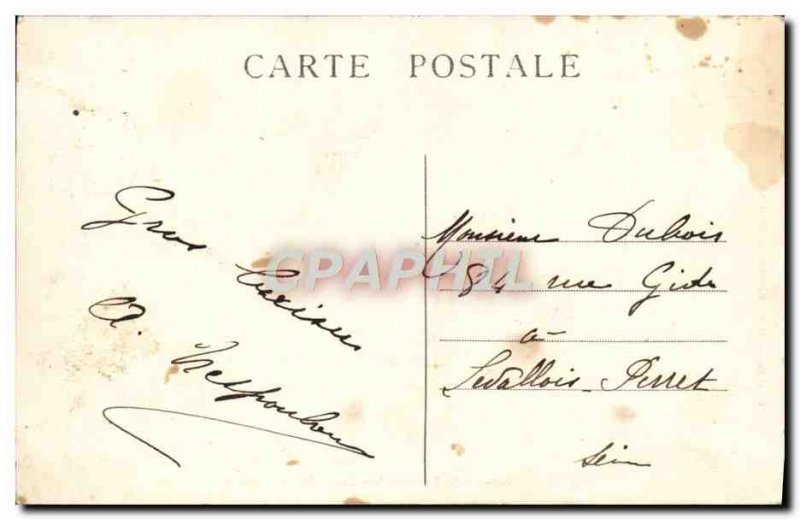 CARTE POSTALE
Gros baisers
A.
Monsieur Dubois
84 rue Gide
à
Levallois-Perret
Seine
CPAPHIL